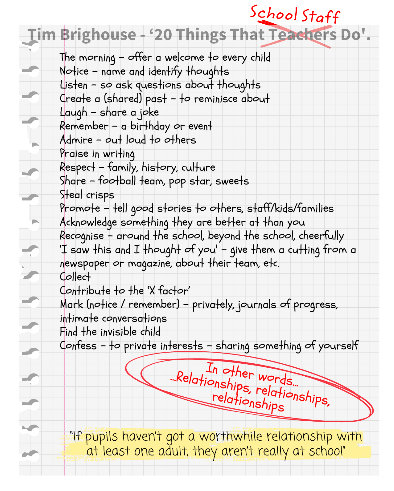 School Staff
Tim Brighouse - '20 Things That Teachers Do'.
The morning – offer a welcome to every child
Notice – name and identify thoughts
Listen – so ask questions about thoughts
Create a (shared) past – to reminisce about
Laugh – share a joke
Remember – a birthday or event
Admire – out loud to others
Praise in writing
Respect – family, history, culture
Share – football team, pop star, sweets
Steal crisps
Promote – tell good stories to others, staff/kids/families
Acknowledge something they are better at than you
Recognise – around the school, beyond the school, cheerfully
'I saw this and I thought of you' – give them a cutting from a
newspaper or magazine, about their team, etc.
Collect
Contribute to the 'X factor'
Mark (notice / remember) – privately, journals of progress,
intimate conversations
Find the invisible child
Confess – to private interests – sharing something of yourself
In other words...
...Relationships, relationships,
relationships
"If pupils haven't got a worthwhile relationship with
at least one adult, they aren't really at school"